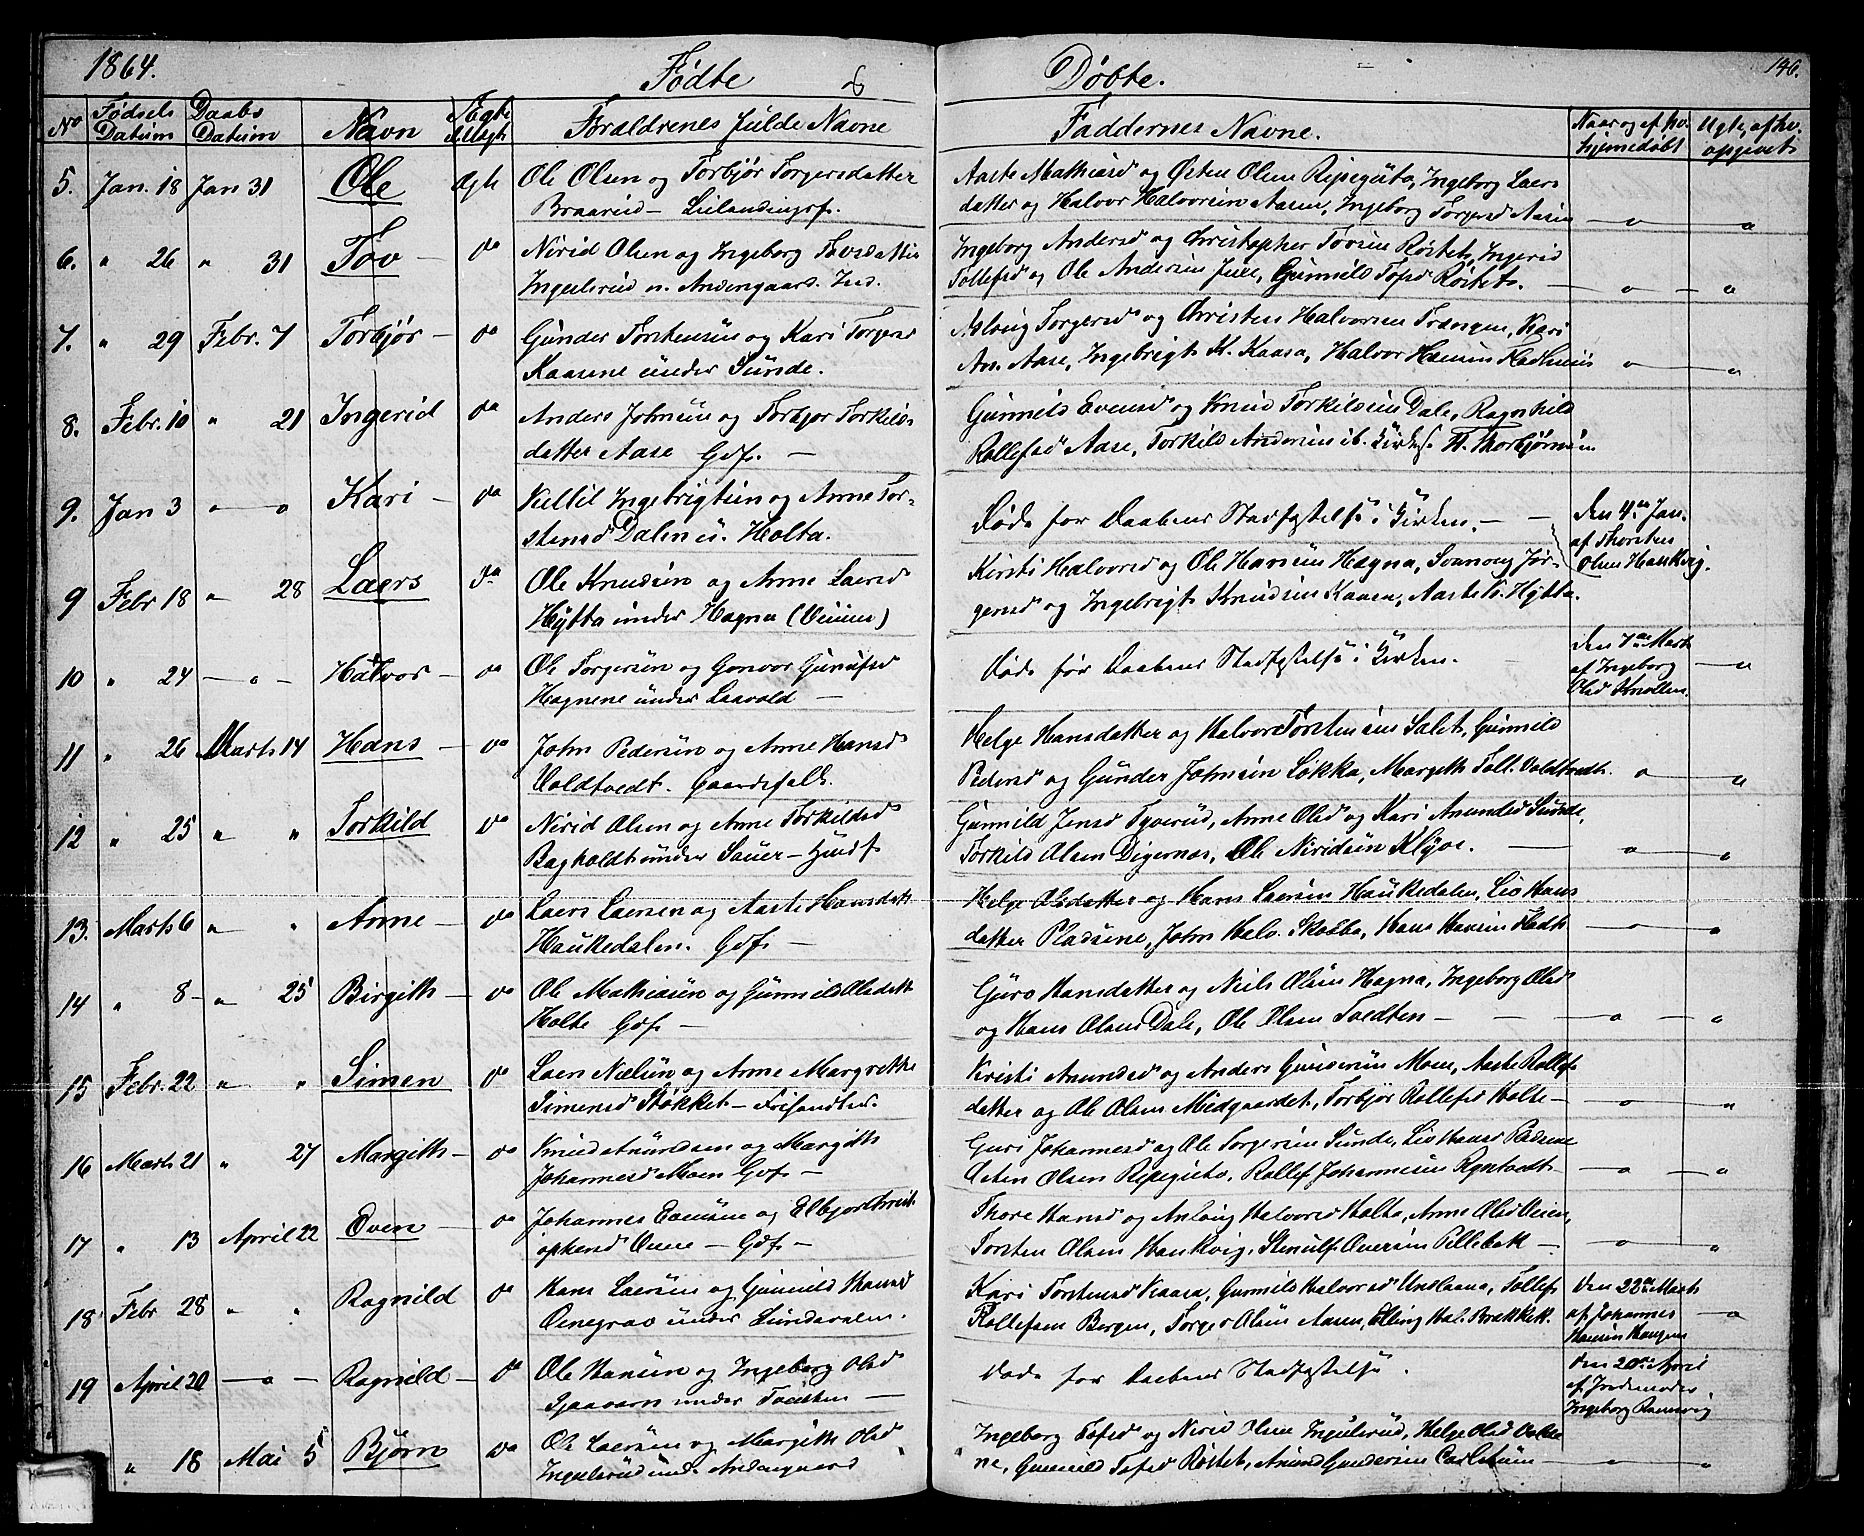 1864.
Fødte
&
Døbte.
146.
No
Fødsels Datum
Daabs Datum
Navn
Ægte
Forældrenes fulde Navne
Faddernes Navne.
Naar og af hv. hjemmedøbt
Ugte, af hv. opgivet
5. Jan. 18 Jan 31 Ole Ægte Ole Olsen og Torbjør Torgersdatter
Braarud - Leilændingsf.
Aaste Mathiasd og Østen Olsen Ripeguto, Ingeborg Laers
datter og Halvor Halvorsen Aasen, Ingeborg Torgersd Aasen
6. " 26 " 31 Tov - do Nirid Olsen og Ingeborg Tovsdatter
Ingulsrud u. Andersgaard. Ind.
Ingeborg Andersd og Christopher Tovsen Røstet, Ingerid
Tollefsd og Ole Andersen Juve, Gunnild Tofsd Røstet.
7. " 29 Febr. 7 Torbjør - do Gunder Torstensen og Kari Torgersd
Kaasene under Sunde.
Aslaug Torgersd og Christen Halvorsen Trængen, Kari
An. Aase, Ingebrigt K. Kaasa, Halvor Hansen
8. Febr. 10 " 21 Ingerid do Anders Johnsen og Torbjør Torkilds
datter Aase Gdf. -
Gunnild Evensd og Knud Torkildsen Dale, Ragnhild
Rollefsd Aase, Torkild Andersen ib. Kirkes. H. Thorbjørnsen
9. Jan 3 Kari - do Kettil Ingebrigtsen og Anne Tor-
stensd Dalen u. Holta.
Døde før Daabens Stadfæstelse i Kirken. -
Den 4de Jan.
af Thorsten
Olsen Haukvig.
9 Febr 18 " 28 Laers do Ole Knudsen og Anne Laersd
Hytta under Hagna (Veiene)
Kirsti Halvorsd og Ole Hansen Hagna, Svanaug Jør-
gensd og Ingebrigt Knudsen Kaasa, Aaste K. Hytta.
10 " 24 Halvor - do Ole Torgersen og Gonvor Gunulfsd
Hagnene under Laavold -
Døde før Daabens Stadfæstelse i Kirken.
Den 7de Marts
af Ingeborg
Olsd Knollen.
11 " 26 Marts 14 Hans - do John Pedersen og Anne Hansd
Voldtvedt. Gaardsfolk.
Helge Hansdatter og Halvor Torstensen Salet, Gunnild
Pedersd og Gunder Johnsen Løkka, Margith Toll. Voldtvedt.
12 " 25 " " Torkild do Nirid Olsen og Anne Torkildsd
Bagholdt under Sauer - Huusf
Gunnild Jensd Tyverud, Anne Olsd og Kari Anundsd Sunde,
Torkild Olsen Digernæs, Ole Niridsen Klyve.
13. Marts 6 " " Anne - do Laers Laersen og Aaste Hansdatt
Haukedalen. Gdf. -
Helge Olsdatter og Hans Laersen Haukedalen, Liv Hans
datter Pladsene, John Halv. Skolba, Hans Hansen
14 " 8 - " 25 Birgith - do Ole Mathiasen og Gunnild Olsdatt
Holte Gdf -
Guro Hansdatter og Niels Olsen Hagna, Ingeborg Olsd
og Hans Olsen Dale, Ole Olsen Tvedten -
15 Febr. 22 " " Simen do Laers Nielsen og Anne Margrethe
Simensd Stokket -
Kirsti Anundsd og Anders Gundersen Moen, Aaste Rollefs
datter og Ole Olsen Midgaardet, Torbjør Rollefsd Holte -
16 Marts 21 " 27 Margith - do Knud Anundsen og Margith
Johannesd Moen Gdf -
Guri Johannesd og Ole Torgersen Sunde, Liv Hansd Pladsene
Østen Olsen Ripeguto, Rollef Johannesen Rønstvedt
17 " 13 April 22 Even - do Johannes Evensen og Elbjør Christ-
ophersd Veien - Gdf -
Thore Hansd og Anlaug Halvorsd Holta, Anne Olsd Veien,
Torsten Olsen Haukvig, Stenulf Oversen Pillebek -
18 Febr 28 " " Ragnild do Hans Laersen og Gunnild Hansd
under Sundsdalen.
Kari Torstensd Kaasa, Gunnild Halvorsd Unslaana, Tollef
Rollefsen Bergen, Torger Olsen Aasen, Elling Hal. Brækkek.
Den 22de Marts
af Johannes
Hansen Haugen
19 April 20 Ragnild - do Ole Hansen og Ingeborg Olsd
under Tvedten -
Døde før Daabens Stadfæstelse.
Den 20de April
af Jordemoder
Ingeborg Ramsvig
" 18 Mai 5 Bjørn do Ole Laersen og Margith Olsd
Ingulsrud und. Andersgaard
Ingeborg Tofsd og Nirid Olsen Ingulsrud, Helge Olsd
ne, Gunnild Tofsd Røstet, Anund Gundersen